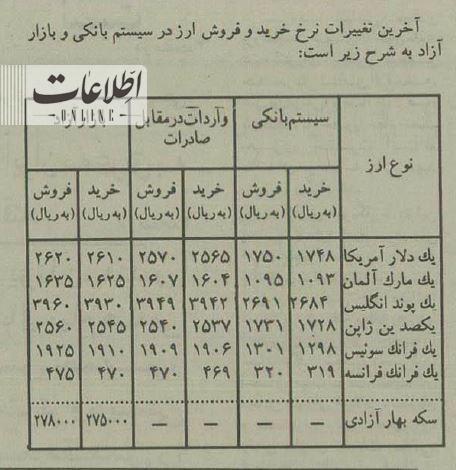 آخرین تغییرات نرخ خرید و فروش ارز در سیستم بانکی و بازار
آزاد به شرح زیر است:
اطلاعات
ONLINE
نوع ارز سیستم بانکی واردات در مقابل صادرات آزاد
خرید (به ریال) فروش (به ریال) خرید (به ریال) فروش (به ریال) خرید (به ریال) فروش (به ریال)
یك دلار آمریکا ۱۷۴۸ ۱۷۵۰ ۲۵۶۵ ۲۵۷۰ ۲۶۱۰ ۲۶۲۰
یك مارك آلمان ۱۰۹۳ ۱۰۹۵ ۱۶۰۴ ۱۶۰۷ ۱۶۲۵ ۱۶۳۵
یك پوند انگلیس ۲۶۸۴ ۲۶۹۱ ۳۹۴۲ ۳۹۴۹ ۳۹۳۰ ۳۹۶۰
یکصد ین ژاپن ۱۷۲۸ ۱۷۳۱ ۲۵۳۷ ۲۵۴۰ ۲۵۴۵ ۲۵۶۰
یك فرانك سوئیس ۱۲۹۸ ۱۳۰۱ ۱۹۰۶ ۱۹۰۹ ۱۹۱۰ ۱۹۲۵
یك فرانك فرانسه ۳۱۹ ۳۲۰ ۴۶۹ ۴۷۰ ۴۷۰ ۴۷۵
سکه بهار آزادی — — — — ۲۷۵۰۰۰ ۲۷۸۰۰۰